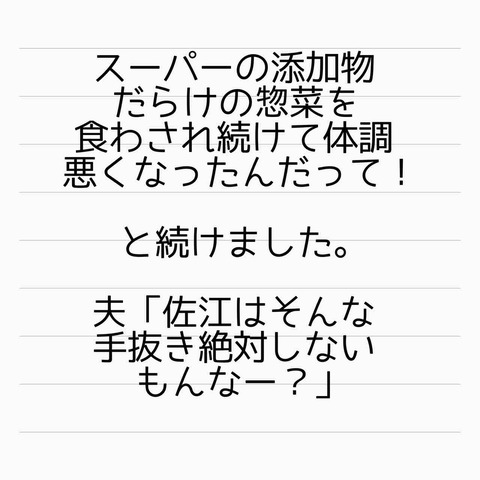 スーパーの添加物
だらけの惣菜を
食わされ続けて体調
悪くなったんだって！
と続けました。
夫「佐江はそんな
手抜き絶対しない
もんなー？」